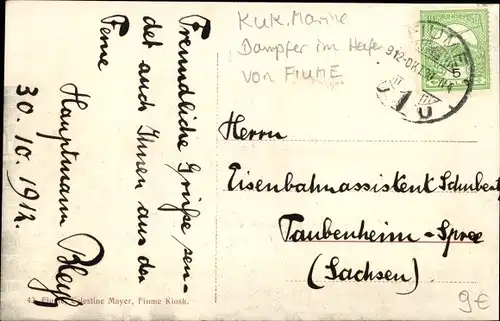 Freundliche Grüße sen-
det auch Ihnen aus der
Ferne
Hauptmann
30. 10. 1912.
KuK. Marine
Dampfer im Hafen
von FIUME
FIUME
912
Herrn
Eisenbahnassistent Schubert
Taubenheim-Spree
(Sachsen)
Celestine Mayer, Fiume Kiosk.
9€